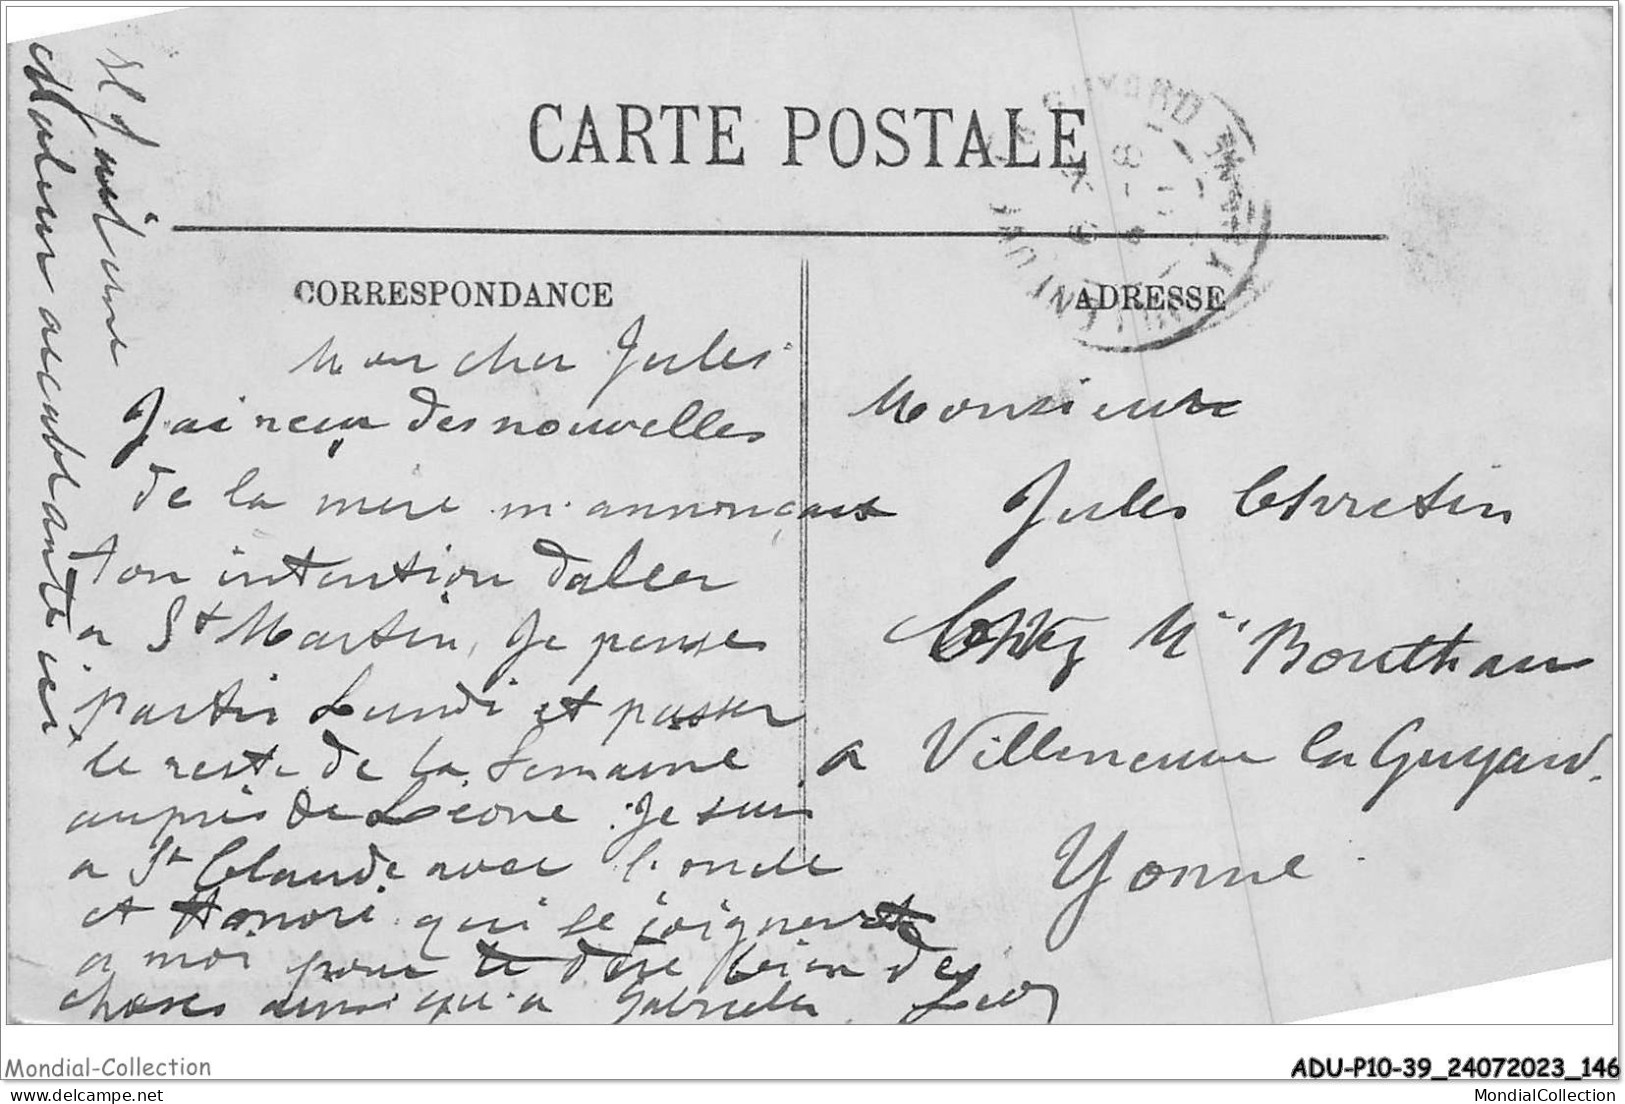 CARTE POSTALE
CORRESPONDANCE
ADRESSE
Mon cher Jules
J'ai reçu des nouvelles
de la mère m'annonçant
ton intention d'aller
a St Martin, Je pense
partir Lundi et passer
le reste de la Semaine
auprès de Léone. Je suis
a St Claude avec l'oncle
et Honoré qui se joignent
a moi pour te dire bien des
choses ainsi qu'a Gabrielle
Il fait une
chaleur accablante ici
Monsieur
Jules Chrretin
Chez Mr
a Villeneuve la Guyard.
Yonne
Mondial-Collection
ADU-P10-39_24072023_146
delcampe.net
MondialCollection